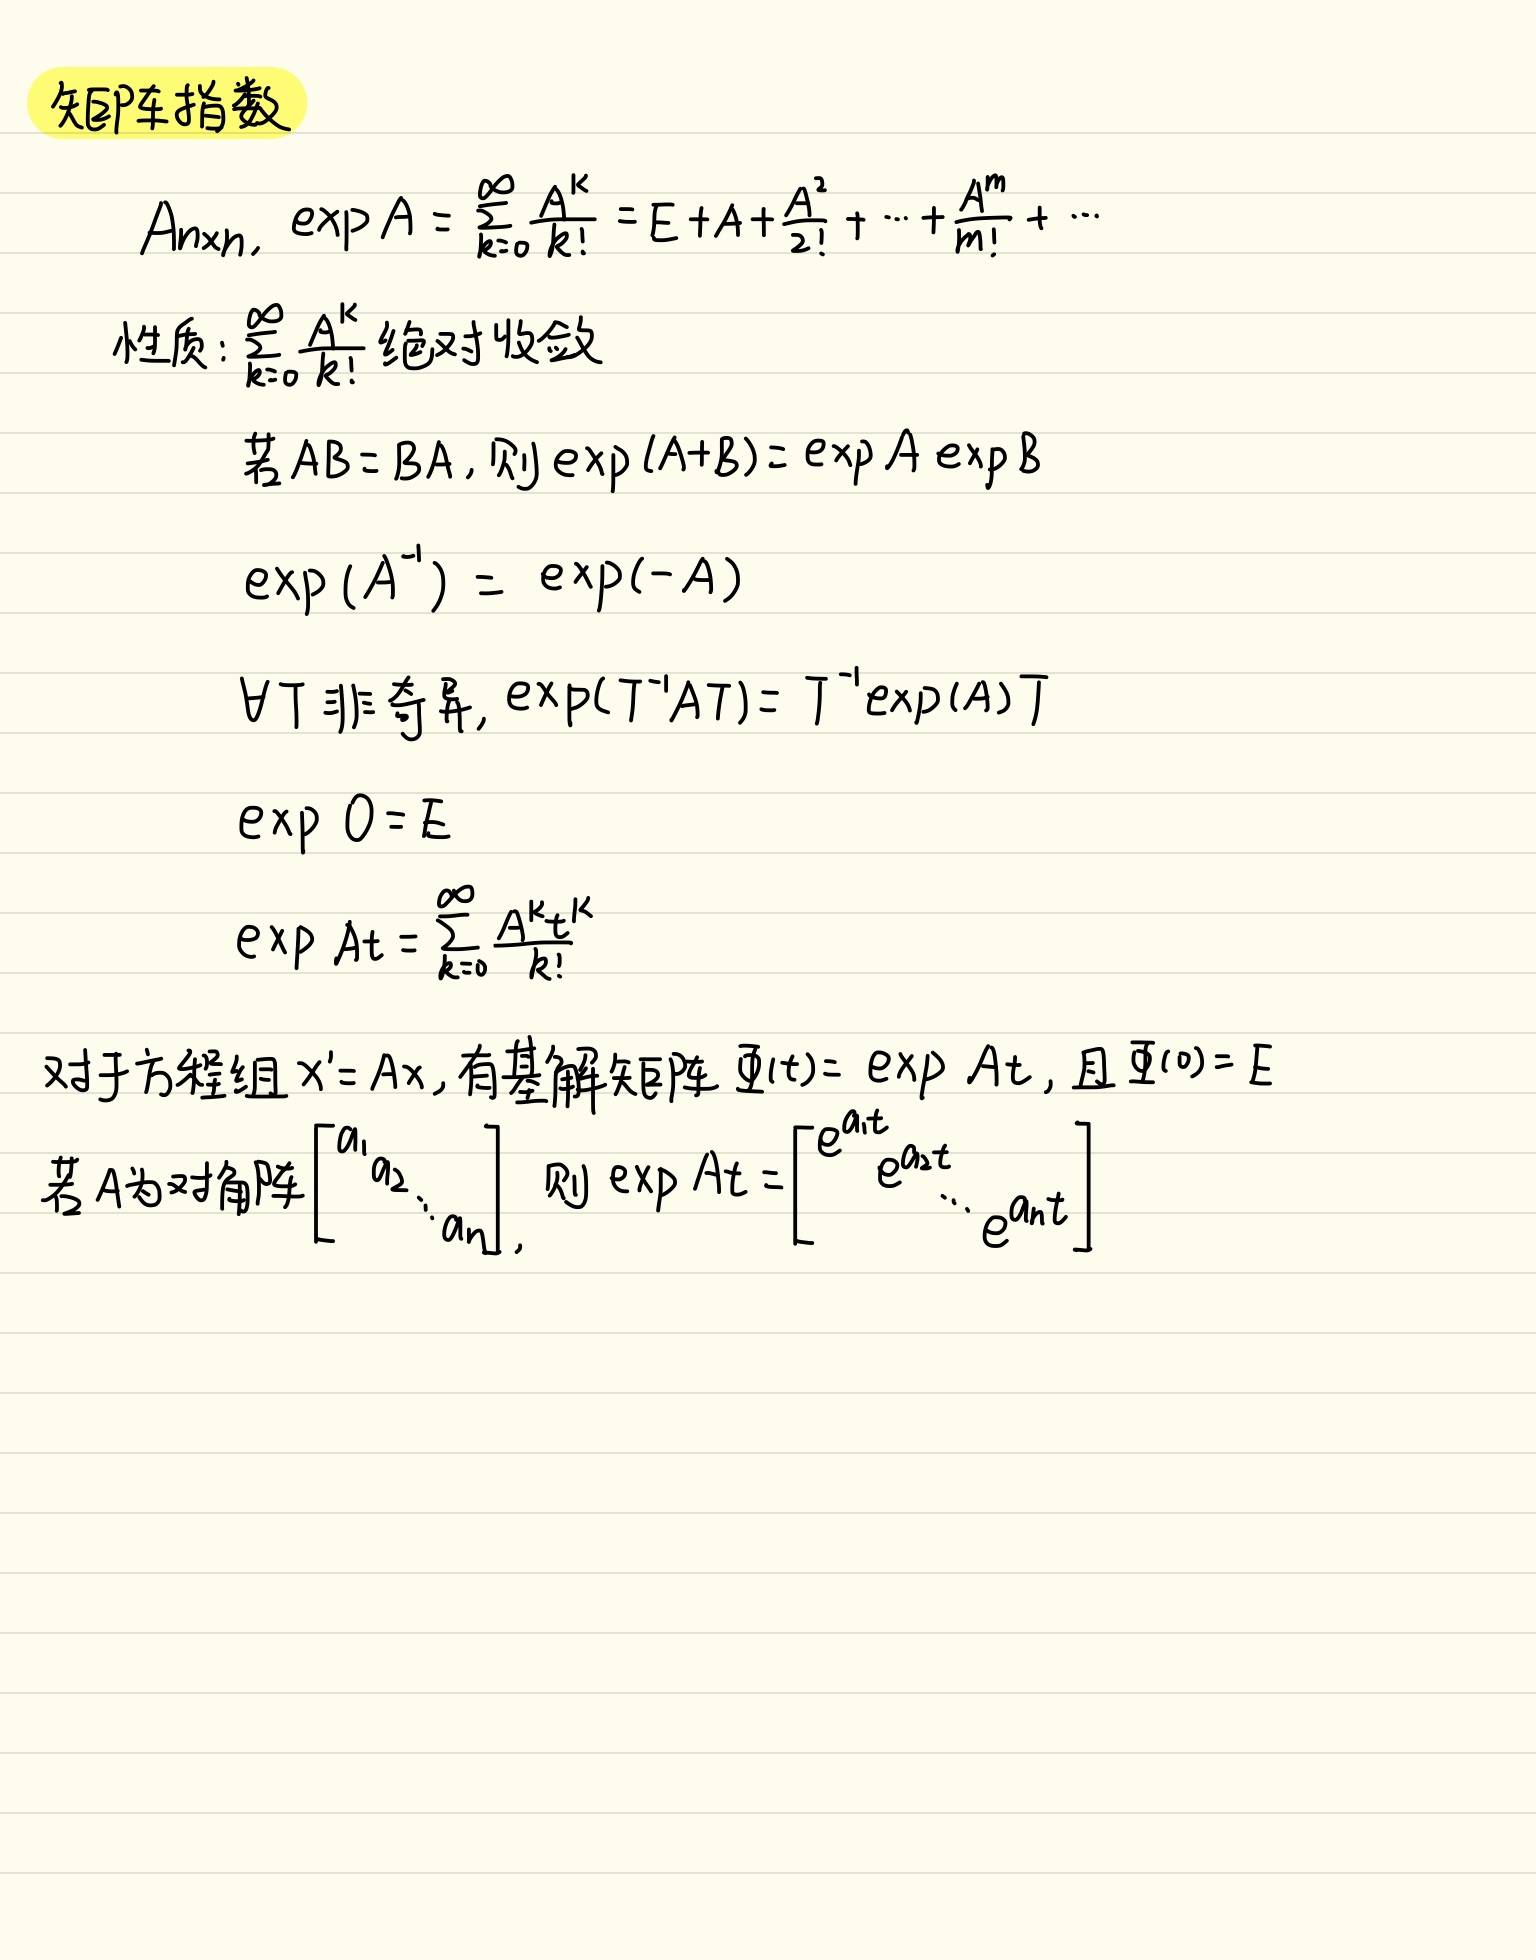 矩阵指数
Aₙₓₙ, exp A = ∑_{k=0}^{∞} A^k/k! = E + A + A²/2! + … + A^m/m! + …
性质: ∑_{k=0}^{∞} A^k/k! 绝对收敛
若 AB = BA, 则 exp(A+B) = exp A exp B
exp(A⁻¹) = exp(-A)
∀T非奇异, exp(T⁻¹AT) = T⁻¹exp(A)T
exp 0 = E
exp At = ∑_{k=0}^{∞} A^k t^k/k!
对于方程组 x' = Ax, 有基解矩阵 Φ(t) = exp At, 且 Φ(0) = E
若 A为对角阵 [a₁ a₂ ⋱ aₙ], 则 exp At = [e^{a₁t} e^{a₂t} ⋱ e^{aₙt}]